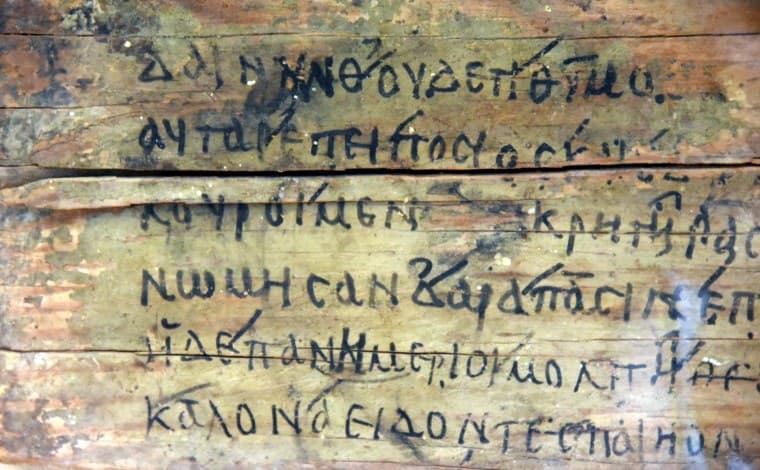 δαινυνθουδεπθυμο
αυταρεπειποσιοσκ
κουροιμεν κρητηρας
νωμησανδαραπασινεπ
ηδεπανημεριοιμολπηθε
καλοναειδοντεσπαιηον